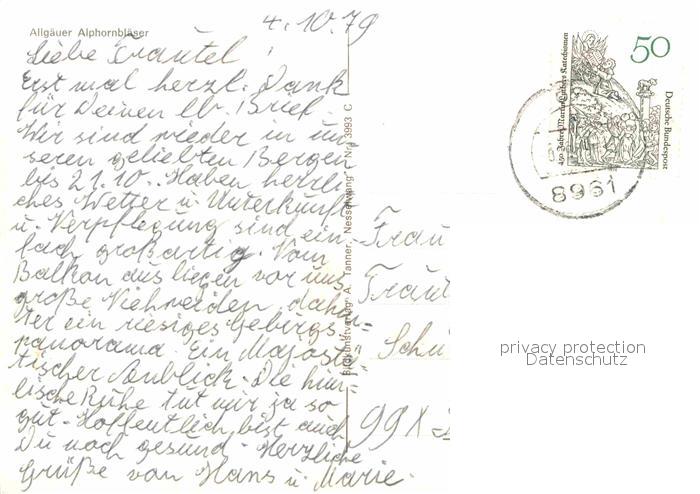 Allgäuer Alphornbläser
4.10.79
Liebe Trautel!
Erst mal herzl. Dank
für Deinen lb. Brief.
Wir sind wieder in un-
seren geliebten Bergen
bis 21.10. Haben herrli-
ches Wetter u. Unterkunft
u. Verpflegung sind ein-
fach großartig. Vom
Balkon aus liegen vor uns
große Viehweiden, dahin-
ter ein riesiges Gebirgs-
panorama. Ein Majestä-
tischer Anblick. Die himm-
lische Ruhe tut mir ja so
gut. Hoffentlich bist auch
Du noch gesund. Herzliche
Grüße von Hans u. Marie.
Bildkunstverlag A. Tanner, Nesselwang - Nr. 3993 C
50
Deutsche Bundespost
450 Jahre Martin Luthers Katechismen
8961
Frau
Traut
Schu
privacy protection
Datenschutz